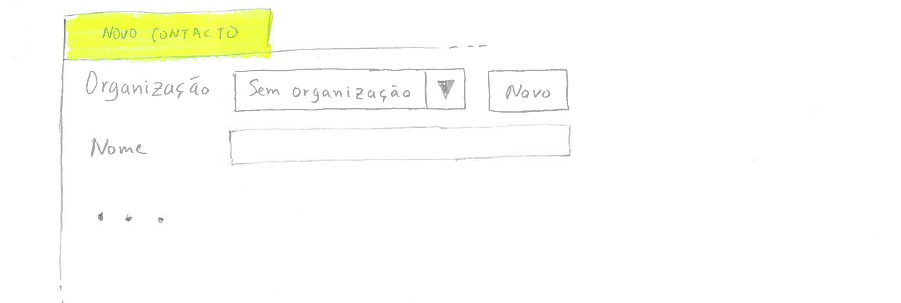 NOVO CONTACTO
Organização Sem organização Novo
Nome
...